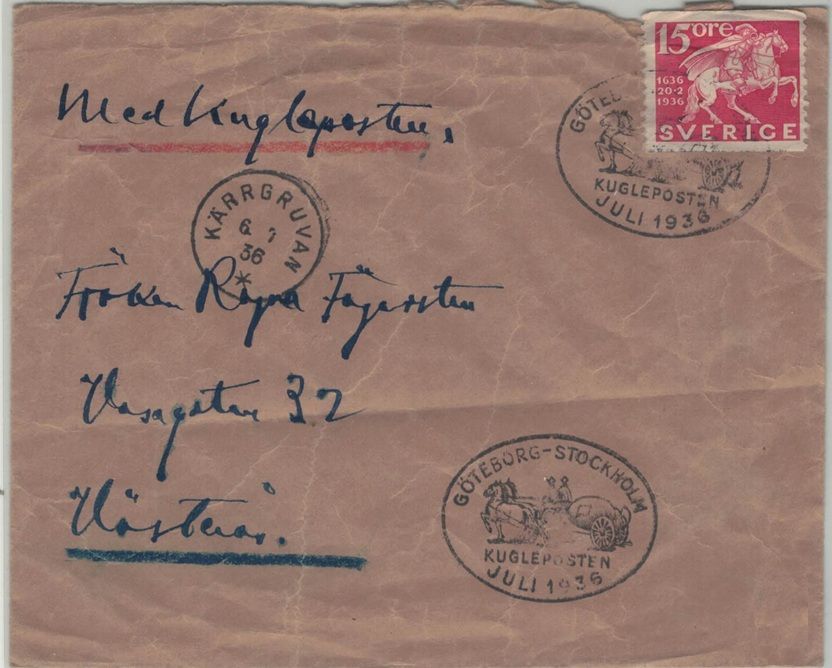 15 öre
1636
20·2
1936
SVERIGE
GÖTEB
KUGLEPOSTEN
JULI 1936
Med Kugleposten.
KÄRRGRUVAN
6 7
36
Fröken Fägersten
Vasagatan 32
Västerås.
GÖTEBORG-STOCKHOLM
KUGLEPOSTEN
JULI 1936